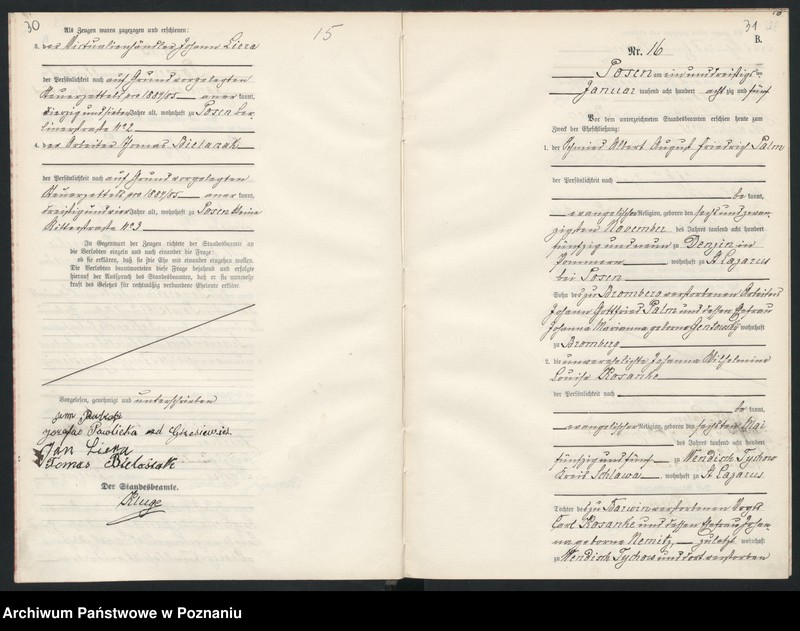 30
15
Als Zeugen waren zugezogen und erschienen:
3. der Victualienhändler Johann Liera
der Persönlichkeit nach auf Grund vorgelegten
Steuerzettels pro 1884/85 aner kannt,
vierzig und sieben Jahre alt, wohnhaft zu Posen Ber
linerstraße No 2
4. der Arbeiter Thomas Bielasiak
der Persönlichkeit nach auf Grund vorgelegten
Steuerzettels pro 1884/85 aner kannt,
dreißig und vier Jahre alt, wohnhaft zu Posen kleine
Ritterstraße No 3
In Gegenwart der Zeugen richtete der Standesbeamte an
die Verlobten einzeln und nach einander die Frage:
ob sie erklären, daß sie die Ehe mit einander eingehen wollen.
Die Verlobten beantworteten diese Frage bejahend und erfolgte
hierauf der Ausspruch des Standesbeamten, daß er sie nunmehr
kraft des Gesetzes für rechtmäßig verbundene Eheleute erkläre.
Vorgelesen, genehmigt und unterschrieben
Jozefa Pawlicka
Jan Liera
Tomas Bielasiak
Der Standesbeamte.
Kluge
31
B.
Nr. 16
Posen am ein und dreißigsten
Januar tausend acht hundert acht zig und fünf
Vor dem unterzeichneten Standesbeamten erschien heute zum
Zweck der Eheschließung:
1. der Schmied Albert August Friedrich Palm
der Persönlichkeit nach
be kannt,
evangelischer Religion, geboren den sechs und zwan
zigsten November des Jahres tausend acht hundert
fünfzig und neun zu Denzin in
Pommern, wohnhaft zu St Lazarus
bei Posen
Sohn des zu Bromberg verstorbenen Arbeiters
Johann Gottfried Palm und dessen Ehefrau
Johanna Marianna geborne wohnhaft
zu Bromberg
2. die unverehelichte Johanna Wilhelmine
Louise Rosanke
der Persönlichkeit nach
be kannt,
evangelischer Religion, geboren den sechsten Mai
des Jahres tausend acht hundert
fünfzig und fünf zu Wendisch Tychow
Kreis Schlawe, wohnhaft zu St Lazarus
Tochter des zu Karwin verstorbenen Vogts
Carl Rosanke und dessen Ehefrau Johan
na geborne Nemitz, zuletzt wohnhaft
zu Wendisch Tychow und dort verstorben
Archiwum Państwowe w Poznaniu